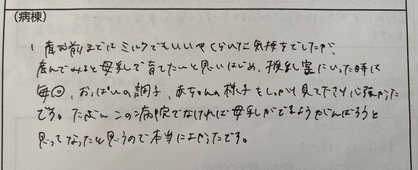 (病棟)
産前まではミルクでもいいやくらいな気持ちでしたが、
産んでみると母乳で育てたいと思いはじめ、授乳室にいった時は
毎回、おっぱいの調子、赤ちゃんの様子をしっかり見て下さり心強かった
です。たぶんこの病院でなければ母乳がでるようがんばろうと
思ってなったと思うので本当によかったです。